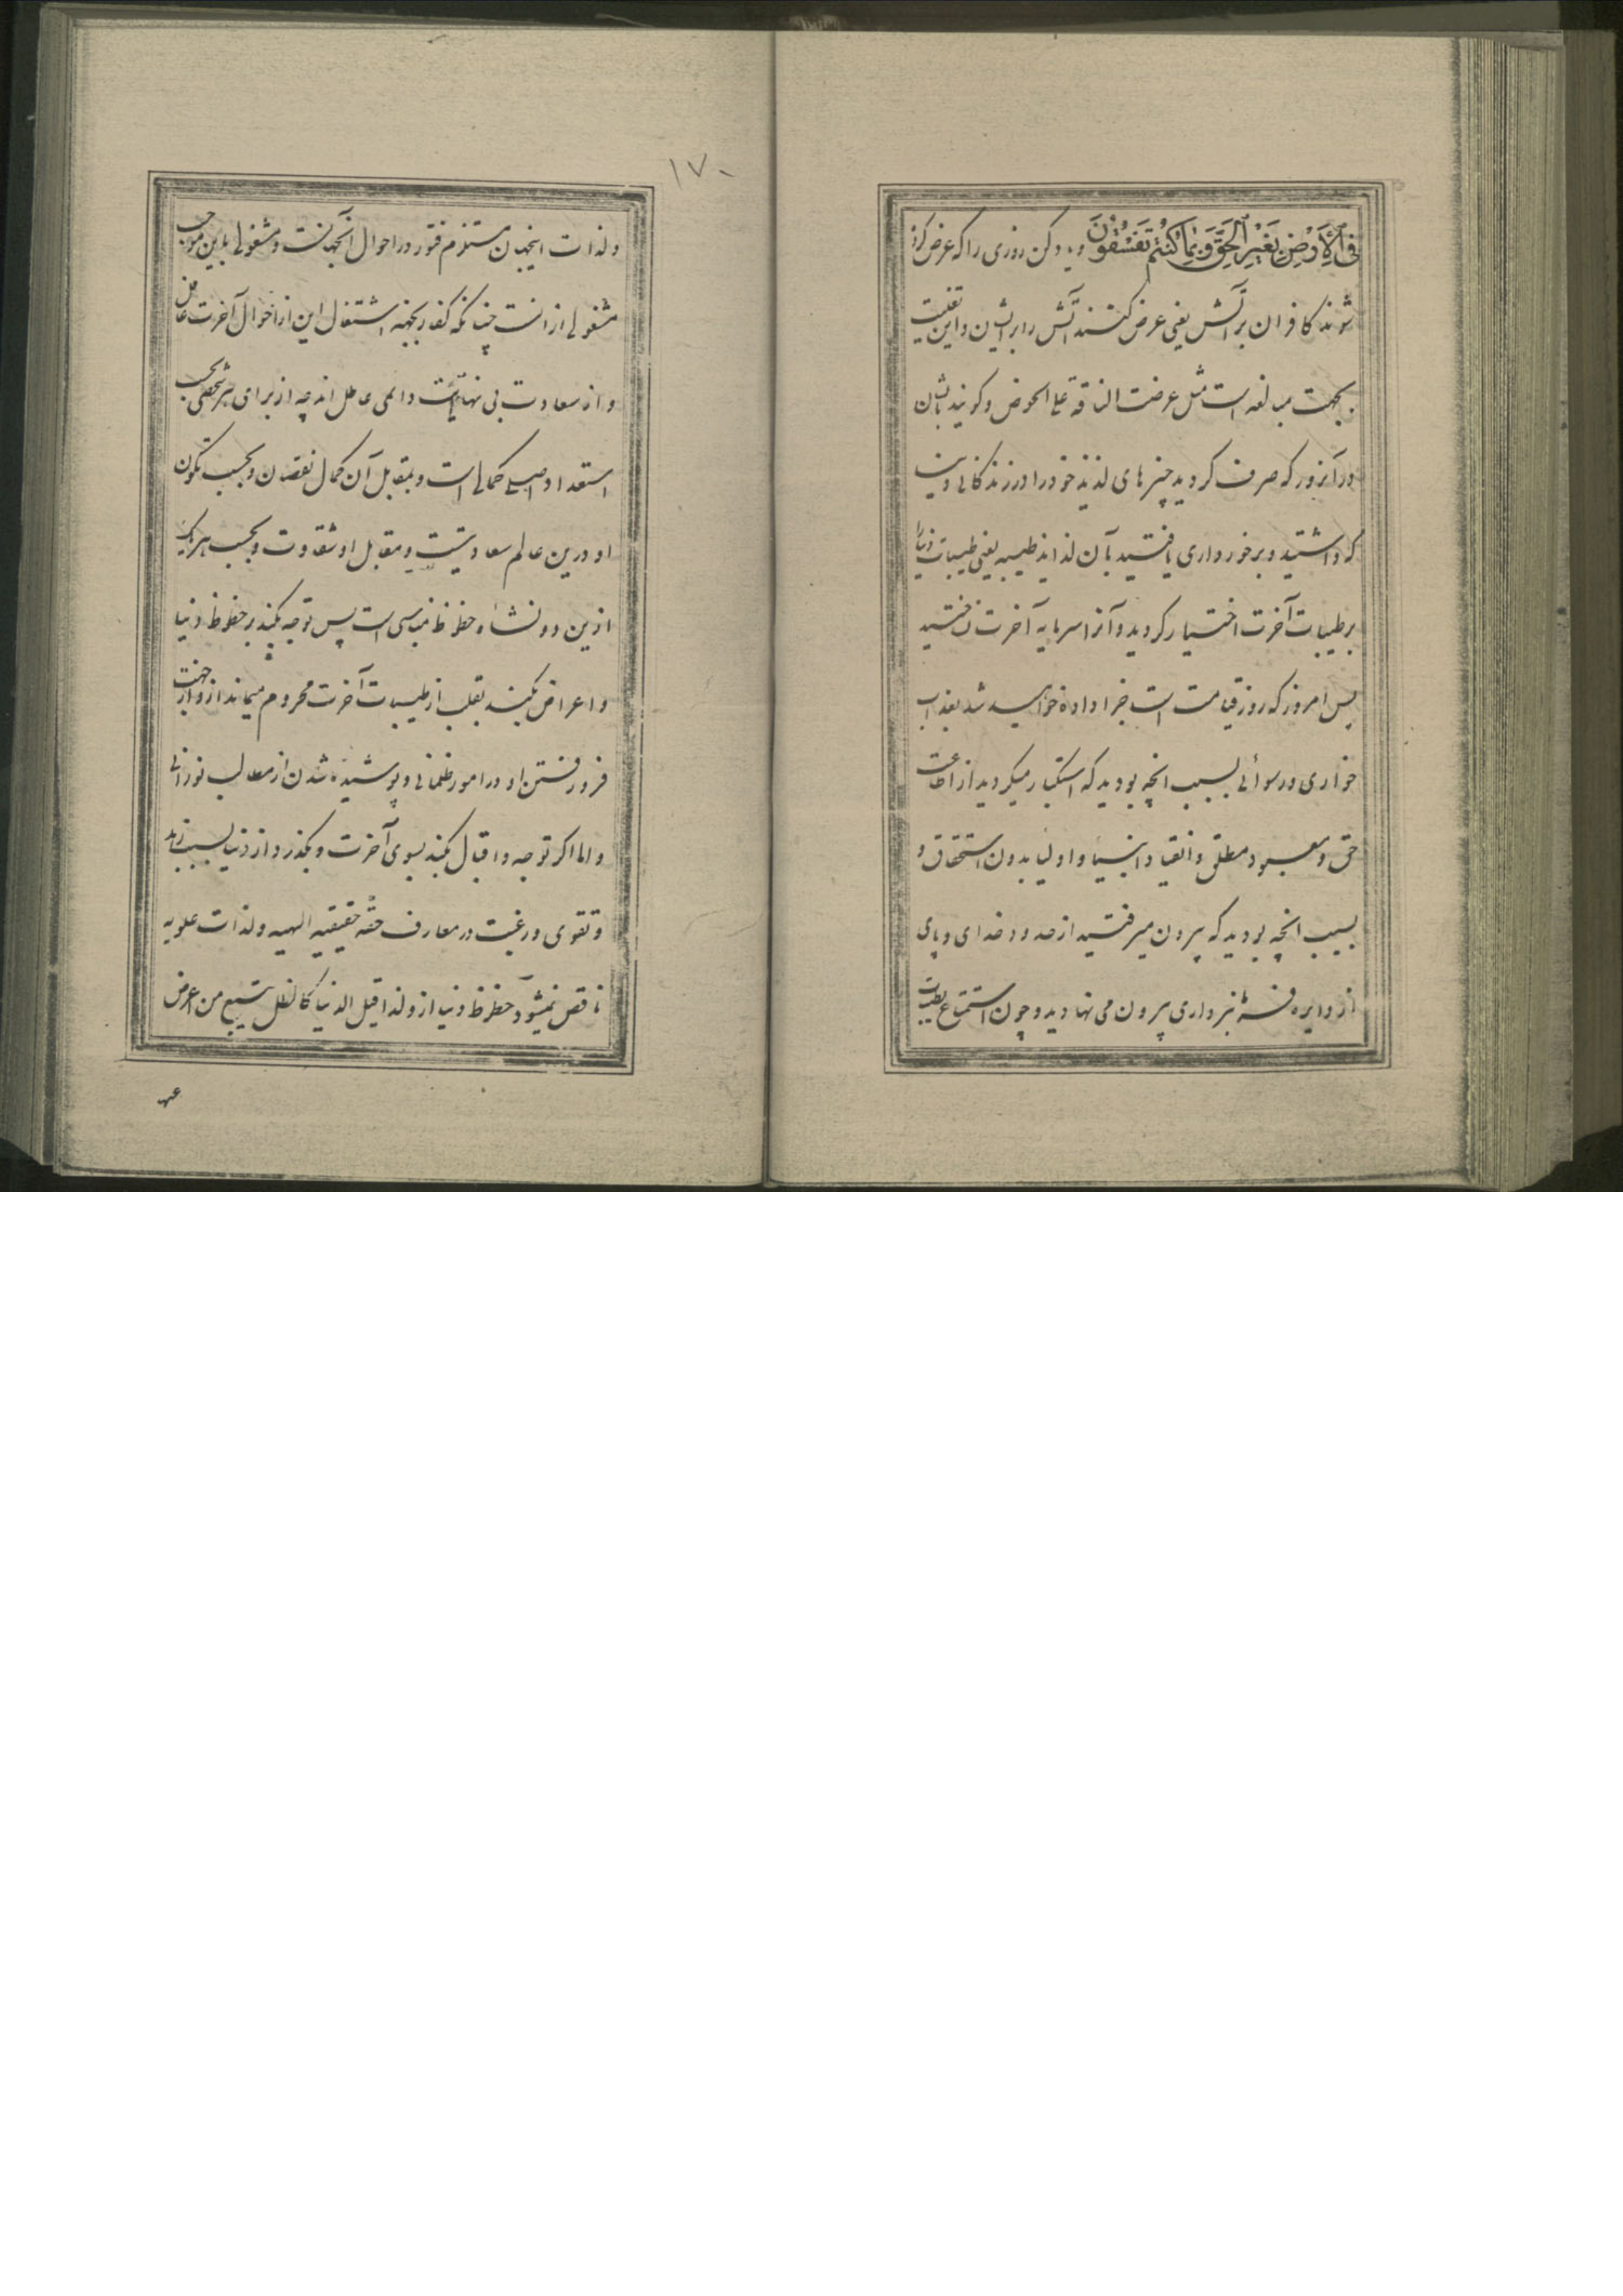 فِی ٱلْأَرْضِ بِغَيْرِ ٱلْحَقِّ وَبِمَا كُنْتُمْ تَفْسُقُونَ و یاد کن روزی را که عرض کرده
شوند کافران بر آتش یعنی عرض کنند آتش را بر ایشان و این تعبیت
بجهت مبالغه است مثل عرضت الناقة علی الحوض و کویند بایشان
در آنروز که صرف کردید چیزهای لذیذ خود را در زندکانی دنیا
که داشتید و برخورداری یافتید بآن لذایذ طیبه یعنی طیبات دنیا را
بر طیبات آخرت اختیار کردید و آنرا سرمایه آخرت نساختید
پس امروز که روز قیامت است جزا داده خواهید شد بعذاب
خواری و رسوائی بسبب انچه بودید که استکبار میکردید از اطاعت
حق و معبود مطلق و انقیاد انبیا و اولیا بدون استحقاق و
بسبب انچه بودید که بیرون میرفتید از حدود خدای و پای
از دایره فرمانبرداری بیرون می نهادید و چون استمتاع بطیبات
۱۷۰
ولذات اینجهان مستلزم فتور در احوال آنجهانست و مشغولی باین موجب
مشغولی از انست چنانکه کفار بجهة اشتغال این از احوال آخرت غافل
و از سعادت بی نهایت دائمی عاطل اند چه از برای هر شخصی بحسب
استعداد اصلی کمالی است و بمقابل آن کمال نقصان و بحسب تکون
او درین عالم سعادتیست و مقابل او شقاوت و بحسب هر یک
ازین دو نشاه حظوظ مناسبی است پس توجه بکند بر حظوظ دنیا
و اعراض بکند بقلب از طیبات آخرت محروم میماند ازو از جهت
فرو رفتن او در امور ظلمانی و پوشیده شدن از مطالب نورانی
و اما اکر توجه و اقبال بکند بسوی آخرت و بکذرد از دنیا بسبب زهد
و تقوی و رغبت در معارف حقه حقیقیه الهیه و لذات علویه
ناقص نمیشود حظوظ دنیا ازو لذا قیل الدنیا کالظل یتبع من اعرض
عنها